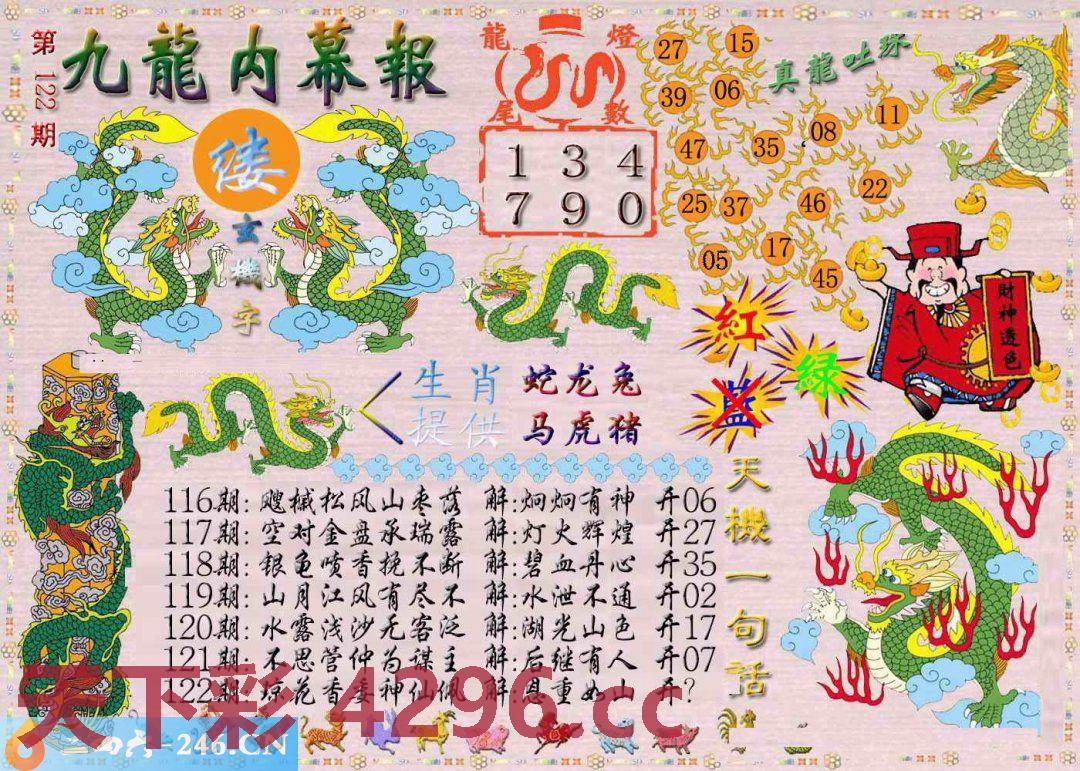 第122期
九龍内幕報
玄機字
龍燈
尾數
1 3 4
7 9 0
真龍吐珠
27 15
39 06
47 35 08 11
25 37 46 22
05 17 45
紅
蓝
緑
財神透色
生肖 蛇龙兔
提供 马虎猪
116期:飕槭松风山枣落 解:炯炯有神 开06
117期:空对金盘承瑞露 解:灯火辉煌 开27
118期:银龟喷香挽不断 解:碧血丹心 开35
119期:山月江风有尽不 解:水泄不通 开02
120期:水露浅沙无客泛 解:湖光山色 开17
121期:不思管仲为谋主 解:后继有人 开07
122期:琼花香委神仙佩 解:恩重如山 开?
天機一句话
天下彩 4296.cc
=246.CN